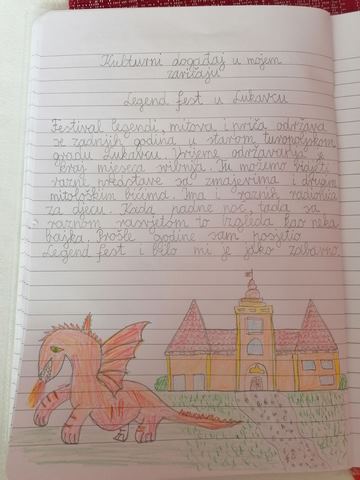 Kulturni događaj u mojem
zavičaju
Legend fest u Lukavcu
Festival legendi, mitova i priča održava
se zadnjih godina u starom turopoljskom
gradu Lukavcu. Vrijeme održavanja je
kraj mjeseca svibnja. Tu možemo vidjeti
razne predstave sa zmajevima i drugim
mitološkim bićima. Ima i raznih radionica
za djecu. Kada padne noć, tada sa
raznom rasvjetom to izgleda kao neka
bajka. Prošle godine sam posjetio
Legend fest i bilo mi je jako zabavno.